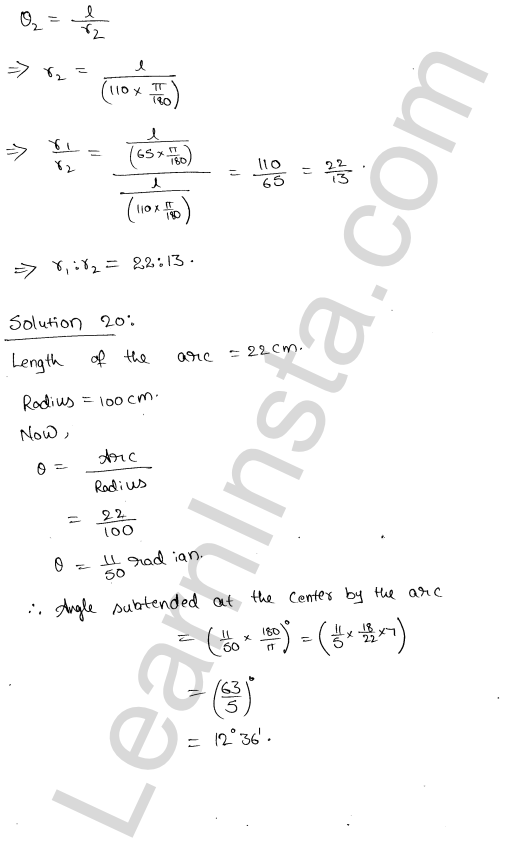 θ₂ = l/r₂
⇒ r₂ = l/(110 × π/180)
⇒ r₁/r₂ = (l/(65 × π/180))/(l/(110 × π/180)) = 110/65 = 22/13.
⇒ r₁ : r₂ = 22:13.
Solution 20:
Length of the arc = 22 cm.
Radius = 100 cm.
Now,
θ = Arc/Radius
= 22/100
θ = 11/50 radian.
∴ Angle subtended at the center by the arc
= (11/50 × 180/π)° = (11/5 × 18/22 × 7)
= (63/5)°
= 12° 36'.
LearnInsta.com